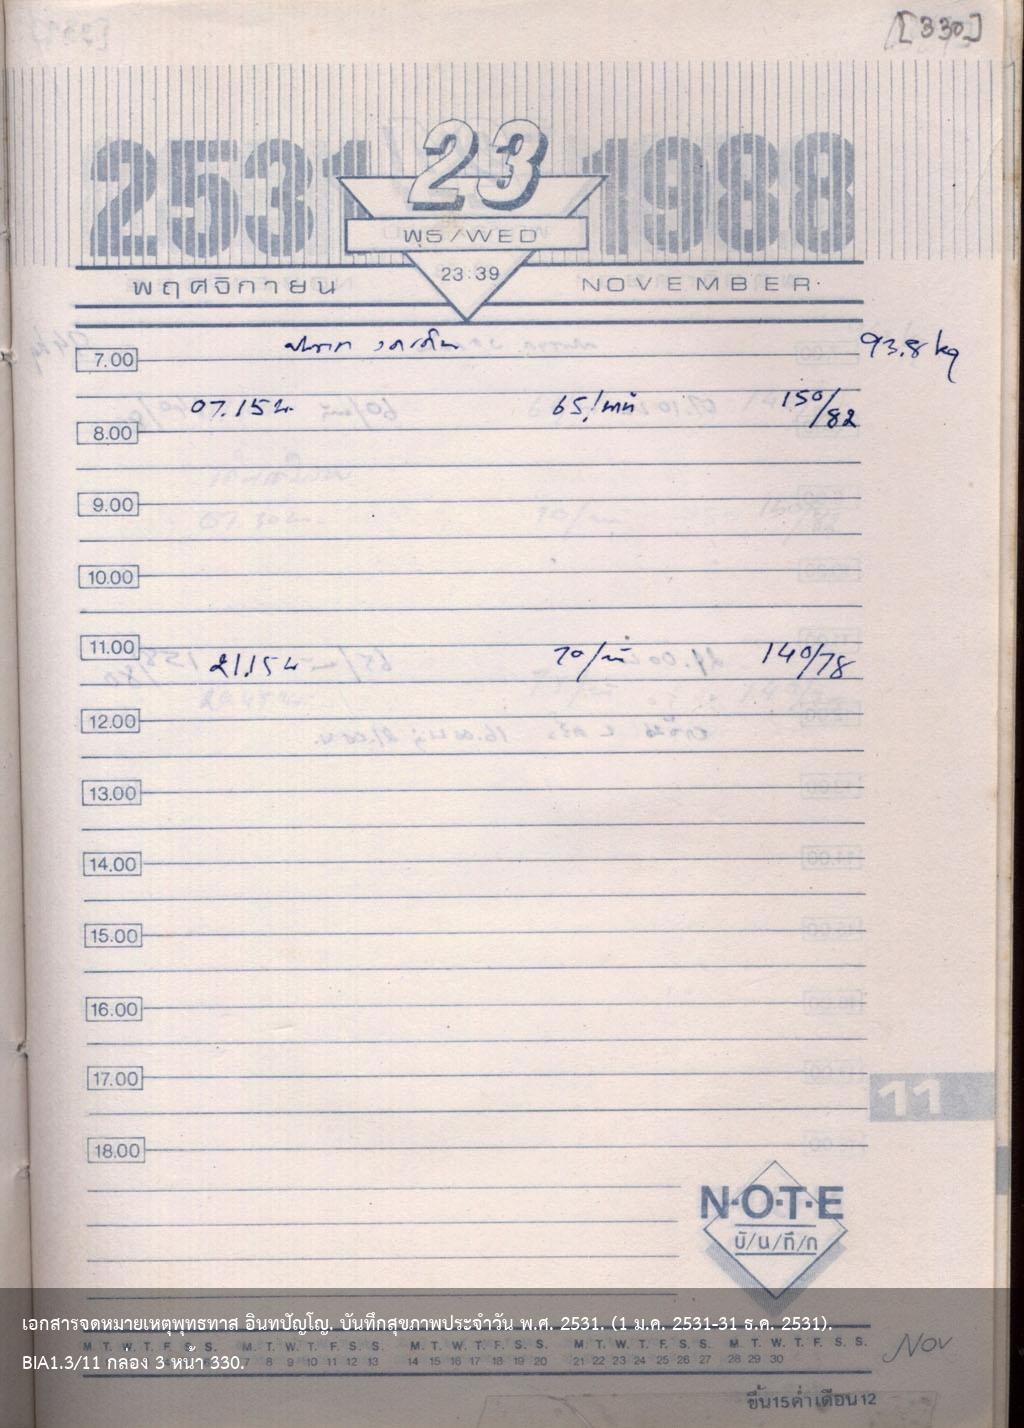 [330]
2531 23 1988
พุธ/WED
23:39
พฤศจิกายน NOVEMBER
93.8 kg
7.00
07.15 น. 65/นาที 150/82
8.00
9.00
10.00
11.00
21.15 น 70/นาที 140/78
12.00
13.00
14.00
15.00
16.00
17.00
11
18.00
N·O·T·E
บั/น/ทึ/ก
เอกสารจดหมายเหตุพุทธทาส อินทปัญโญ. บันทึกสุขภาพประจำวัน พ.ศ. 2531. (1 ม.ค. 2531-31 ธ.ค. 2531).
M. T. W. T. F. S. S. M. T. W. T. F. S. S. M. T. W. T. F. S. S. M. T. W. T. F. S. S. M. T. W. T. F. S. S. Nov
BIA1.3/11 กล่อง 3 หน้า 330. 7 8 9 10 11 12 13 14 15 16 17 18 19 20 21 22 23 24 25 26 27 28 29 30
ขึ้น15ค่ำเดือน12